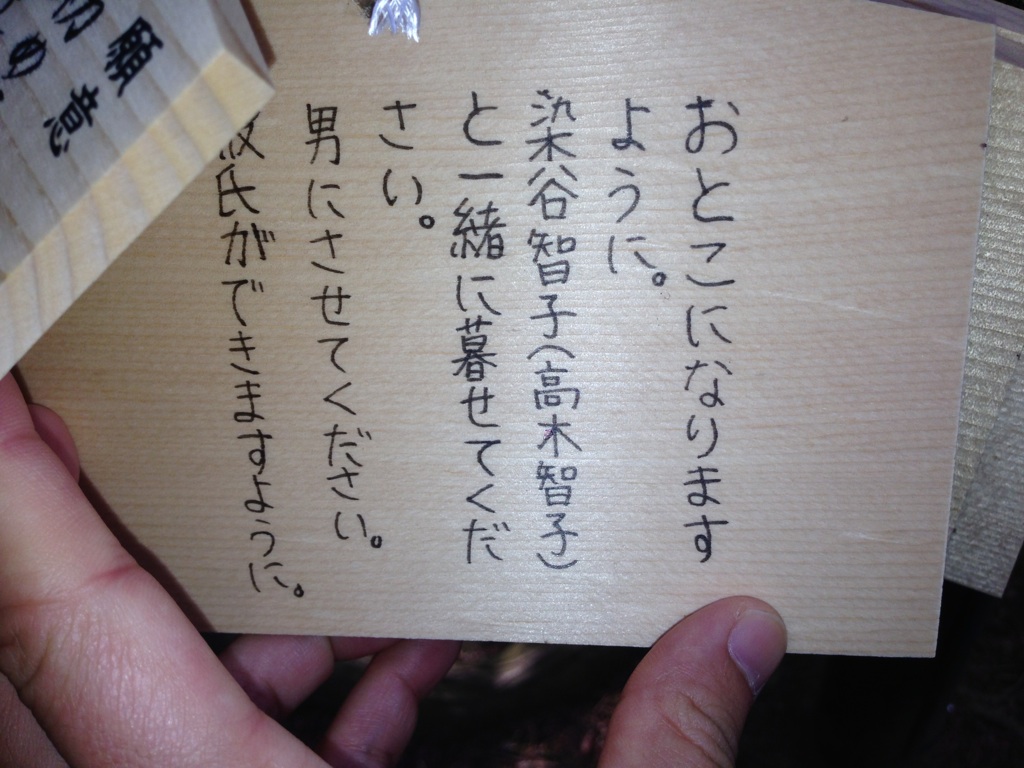 おとこになります
ように。
染谷智子(高木智子)
と一緒に暮せてくだ
さい。
男にさせてください。
彼氏ができますように。
願意